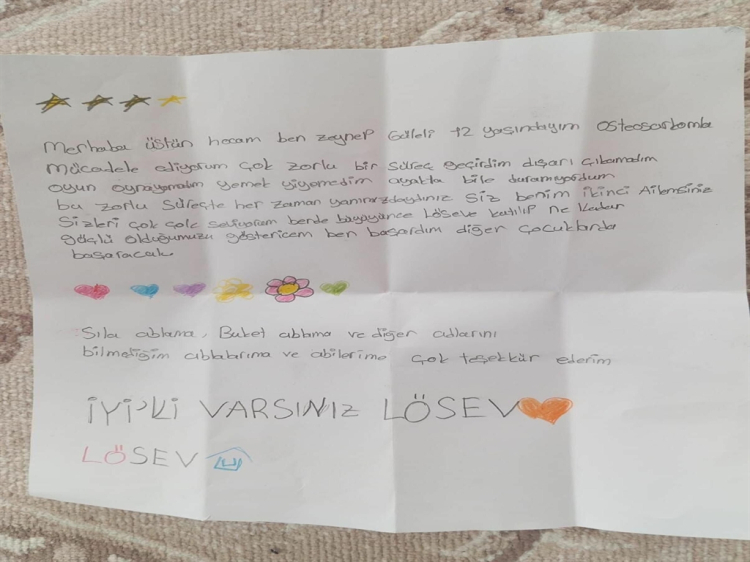 Merhaba üstün hocam ben zeynep 12 yaşındayım Osteosarkomla
mücadele ediyorum çok zorlu bir süreç geçirdim dışarı çıkamadım
oyun oynayamadım yemek yiyemedim ayakta bile duramıyordum
bu zorlu süreçte her zaman yanımızdaydınız siz benim ikinci Ailemsiniz
Sizleri çok çok seviyorum bende büyüyünce Löseve katılıp ne kadar
güçlü olduğumuzu göstericem ben başardım diğer çocuklarda
başaracak
Sıla ablama, Buket ablama ve diğer adlarını
bilmediğim ablalarıma ve abilerime çok teşekkür ederim
İYİ'Kİ VARSINIZ LÖSEV
LÖSEV